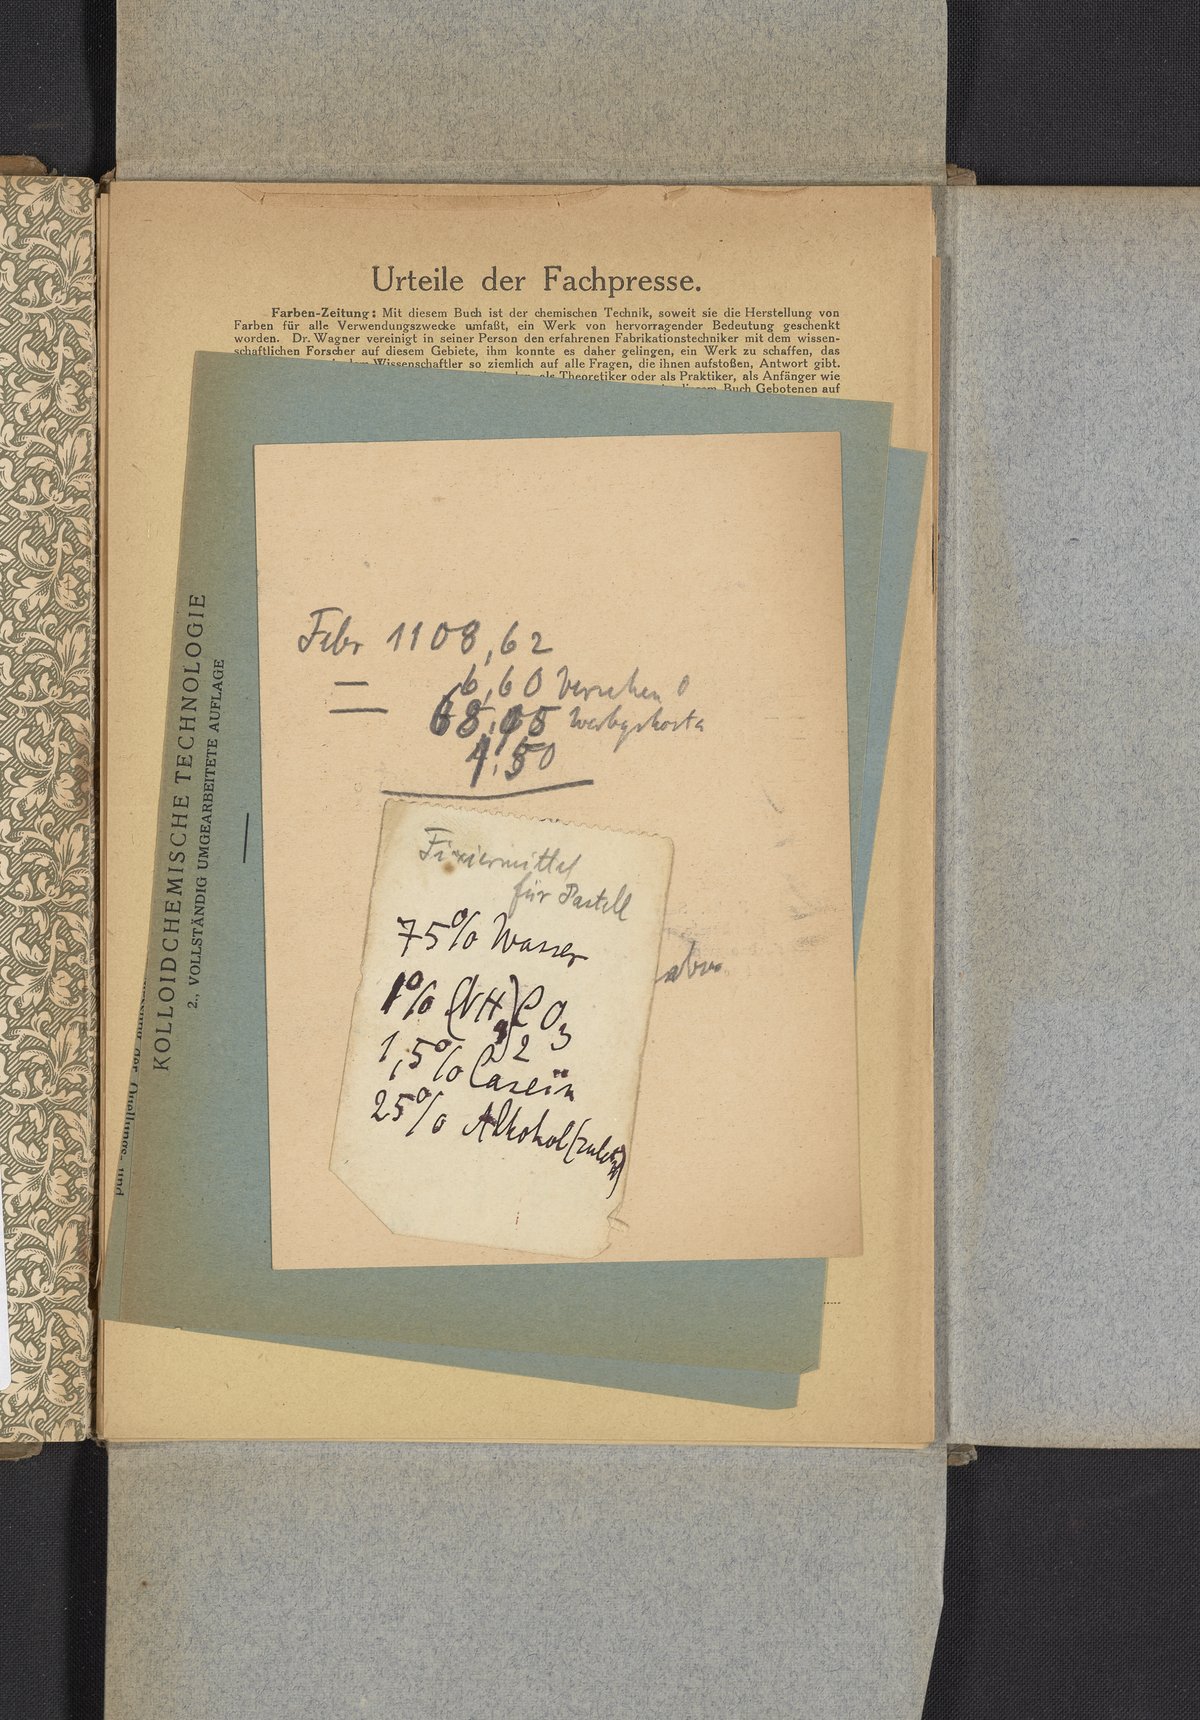 Urteile der Fachpresse.
Farben-Zeitung: Mit diesem Buch ist der chemischen Technik, soweit sie die Herstellung von
Farben für alle Verwendungszwecke umfaßt, ein Werk von hervorragender Bedeutung geschenkt
worden. Dr. Wagner vereinigt in seiner Person den erfahrenen Fabrikationstechniker mit dem wissen-
schaftlichen Forscher auf diesem Gebiete, ihm konnte es daher gelingen, ein Werk zu schaffen, das
Wissenschaftler so ziemlich auf alle Fragen, die ihnen aufstoßen, Antwort gibt.
als Theoretiker oder als Praktiker, als Anfänger wie
diesem Buch Gebotenen auf
KOLLOIDCHEMISCHE TECHNOLOGIE
2., VOLLSTÄNDIG UMGEARBEITETE AUFLAGE
der Quellungs- und
Febr 1108,62
6,60 Versehen
68,05
4,50
Fixiermittel
für Pastell
75% Wasser
1% (NH4)2CO3
1,5% Caseïn
25% Alkohol (zuletzt)